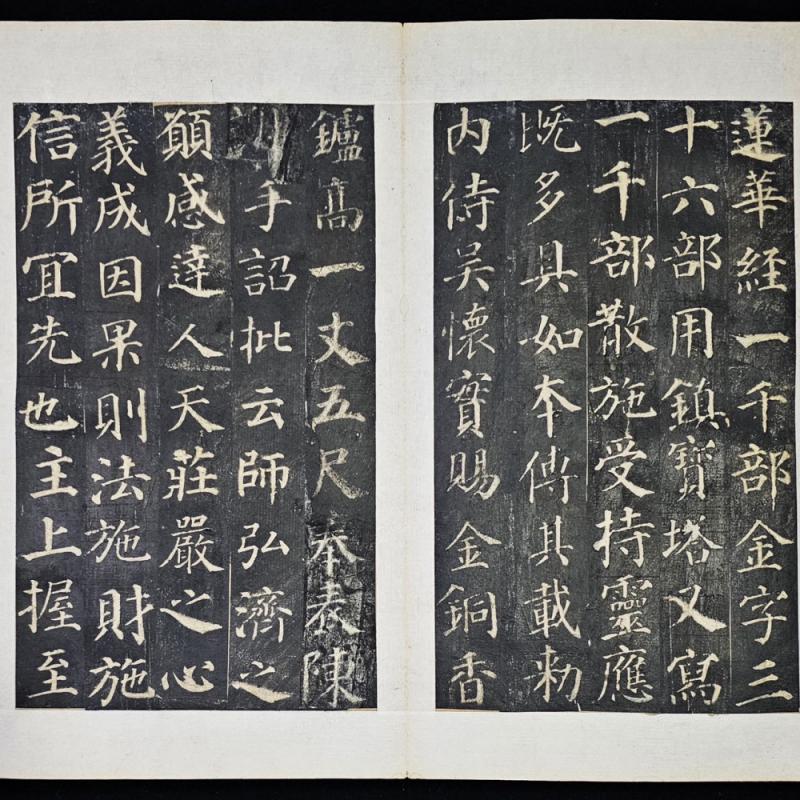 蓮華經一千部金字三
十六部用鎮寶塔又寫
一千部散施受持靈應
既多具如本傳其載勑
内侍吴懷實賜金銅香
鑪髙一丈五尺奉表陳
手詔批云師弘濟之
願感達人天莊嚴之心
義成因果則法施財施
信所冝先也主上握至